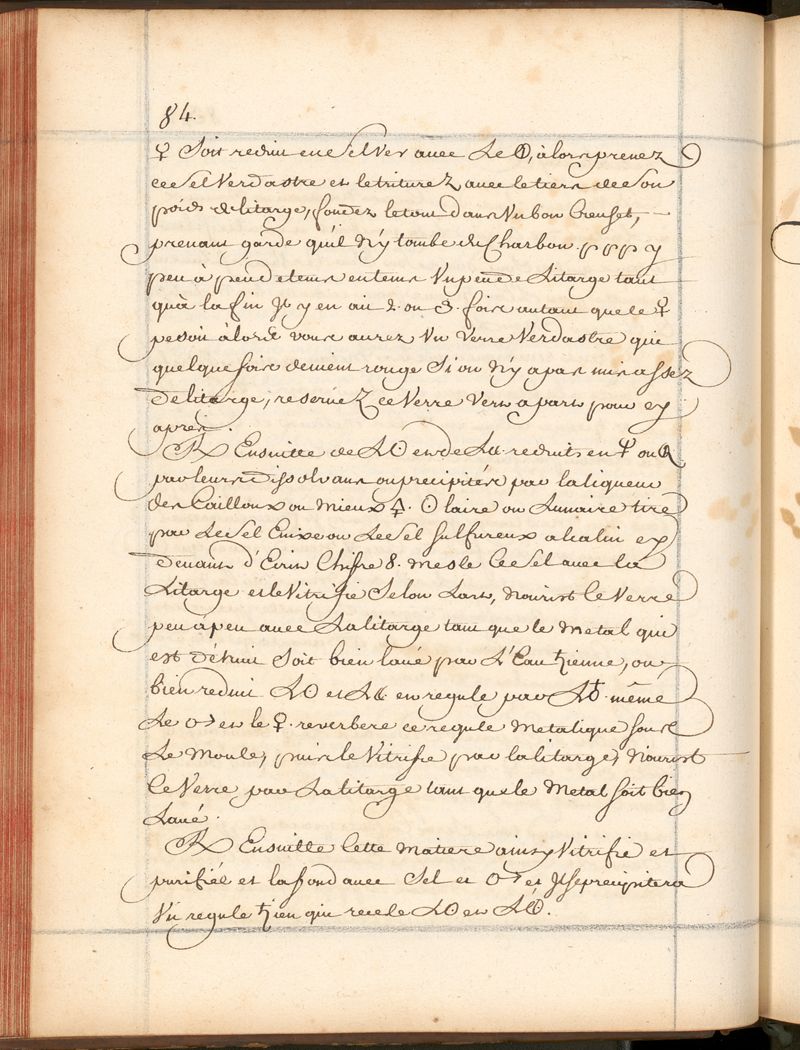 84.
♀ Soit reduit en Sel Ver avec Le 🜕, alors prenez
ce Sel Verdastre et le triturez avec le tiers de son
poids de litarge, fondez le tout dans Un bon Creuset,
prenant garde qu'il n'y tombe du Charbon. ppp y
peu à peu de tems en tems Un peu de Litarge tant
qu'à la fin Jl y en ait 2. ou 3. fois autant que le ♀
pesoit alors vous aurez Un Verre Verdastre qui
quelque fois devient rouge Si on n'y a pas mis assez
De litarge, reservez ce Verre Vers a part pour cy
aprés.
℞ Ensuitte de L☉ et de L☾. reduits en
par leurs dissolvans ou precipitées par la liqueur
des Cailloux ou mieux . ☉ laire ou Lunaire tiré
par Le Sel Enixe ou Le Sel Sulfureux alcalin cy
Devant d'Ecrit Chifre 8. mesle Ce Sel avec la
Litarge et le Vitrifie Selon Lart, Nourist le Verre
peu à peu avec La litarge tant que le metal qui
est détruit Soit bien lavé par L'Eau ♄ienne, ou
bien reduit L☉ et L☾. en regule par L♁. même
Le ♂ et le ♀. reverbere ce regule metalique sous
Le Moule, puis le Vitrifie par la litarge, Nourist
Le Verre par La litarge tant que le Metal soit bien
Lavé.
℞ Ensuitte Cette Matiere ainsy Vitrifié et
purifiée et la fond avec Sel et ♂ et Jl se precipitera
Un regule ♄ien qui recele L☉ et L☾.